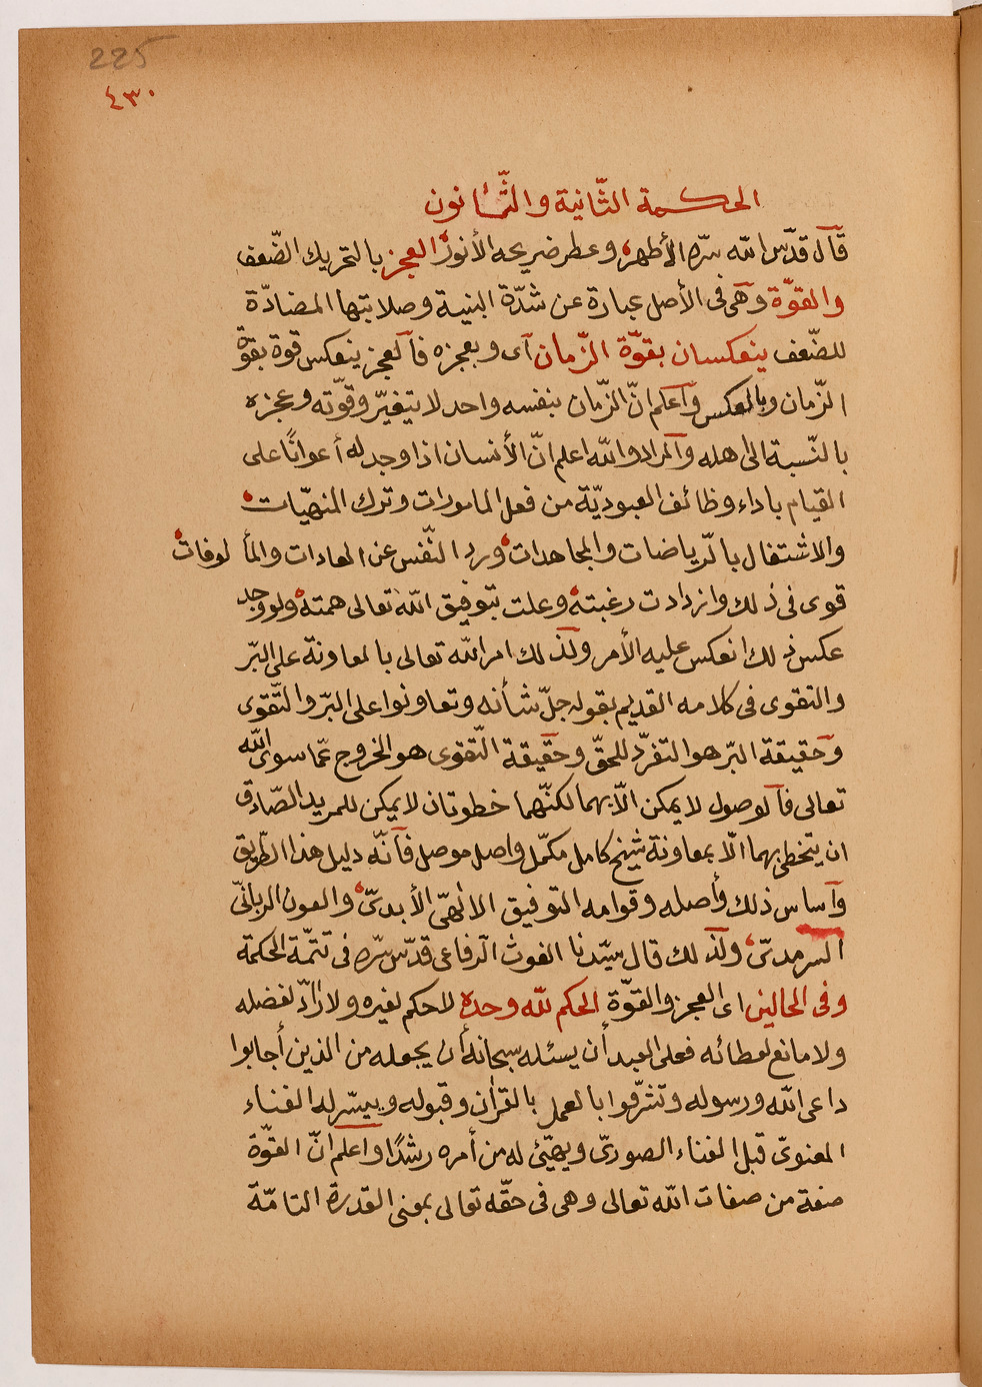 225
٤٣٠
الحكمة الثّانية والثّمانون
قال قدّس الله سرّه الأطهر، وعطر ضريحه الأنور، العجز بالتحريك الضّعف
والقوّة وهى فى الأصل عبارة عن شدّة البنية وصلابتها المضادّة
للضّعف ينعكسان بقوّة الزّمان اى وبعجزه فالعجز ينعكس قوة بقوّة
الزّمان وبالعكس واعلم انّ الزّمان بنفسه واحد لا يتغيّر وقوّته وعجزه
بالنّسبة الى اهله والمراد والله اعلم انّ الأنسان اذا وجد له أعوانًا على
القيام باداء وظائف العبوديّة من فعل المامورات وترك المنهيّات،
والاشتغال بالرّياضات والمجاهدات، ورد النّفس عن العادات والمألوفات،
قوى فى ذلك وازدادت رغبته، وعلت بتوفيق الله تعالى همته، ولو وجد
عكس ذلك انعكس عليه الأمر ولذلك امر الله تعالى بالمعاونة على البرّ
والتقوى فى كلامه القديم بقوله جلّ شأنه وتعاونوا على البرّ والتّقوى
وحقيقة البرّ هو التفرّد للحقّ وحقيقة التّقوى هو الخروج عمّا سوى الله
تعالى فالوصول لا يمكن الّا بهما لكنّهما خطوتان لا يمكن للمريد الصّادق
ان يتخطى بهما الّا بمعاونة شيخ كامل مكمّل واصل موصل فانّه دليل هذا الطّريق
واساس ذلك وأصله وقوامه التوفيق الالٰهىّ الأبدىّ، والعون الربانّى
السرمدىّ، ولذلك قال سيّدنا الغوث الرّفاعى قدّس سرّه فى تتمّة الحكمة
وفى الحالين اى العجز والقوّة الحكم لله وحده لا حكم لغيره ولا رادّ لفضله
ولا مانع لعطائه فعلى العبد أن يسئله سبحانه أن يجعله من الذين أجابوا
داعى الله ورسوله وتشرّفوا بالعمل بالقرآن وقبوله وييسّر له الفناء
المعنوىّ قبل الفناء الصورىّ ويهيّئ له من أمره رشدًا واعلم انّ القوّة
صفة من صفات الله تعالى وهى فى حقّه تعالى بمعنى القدرة التامّة